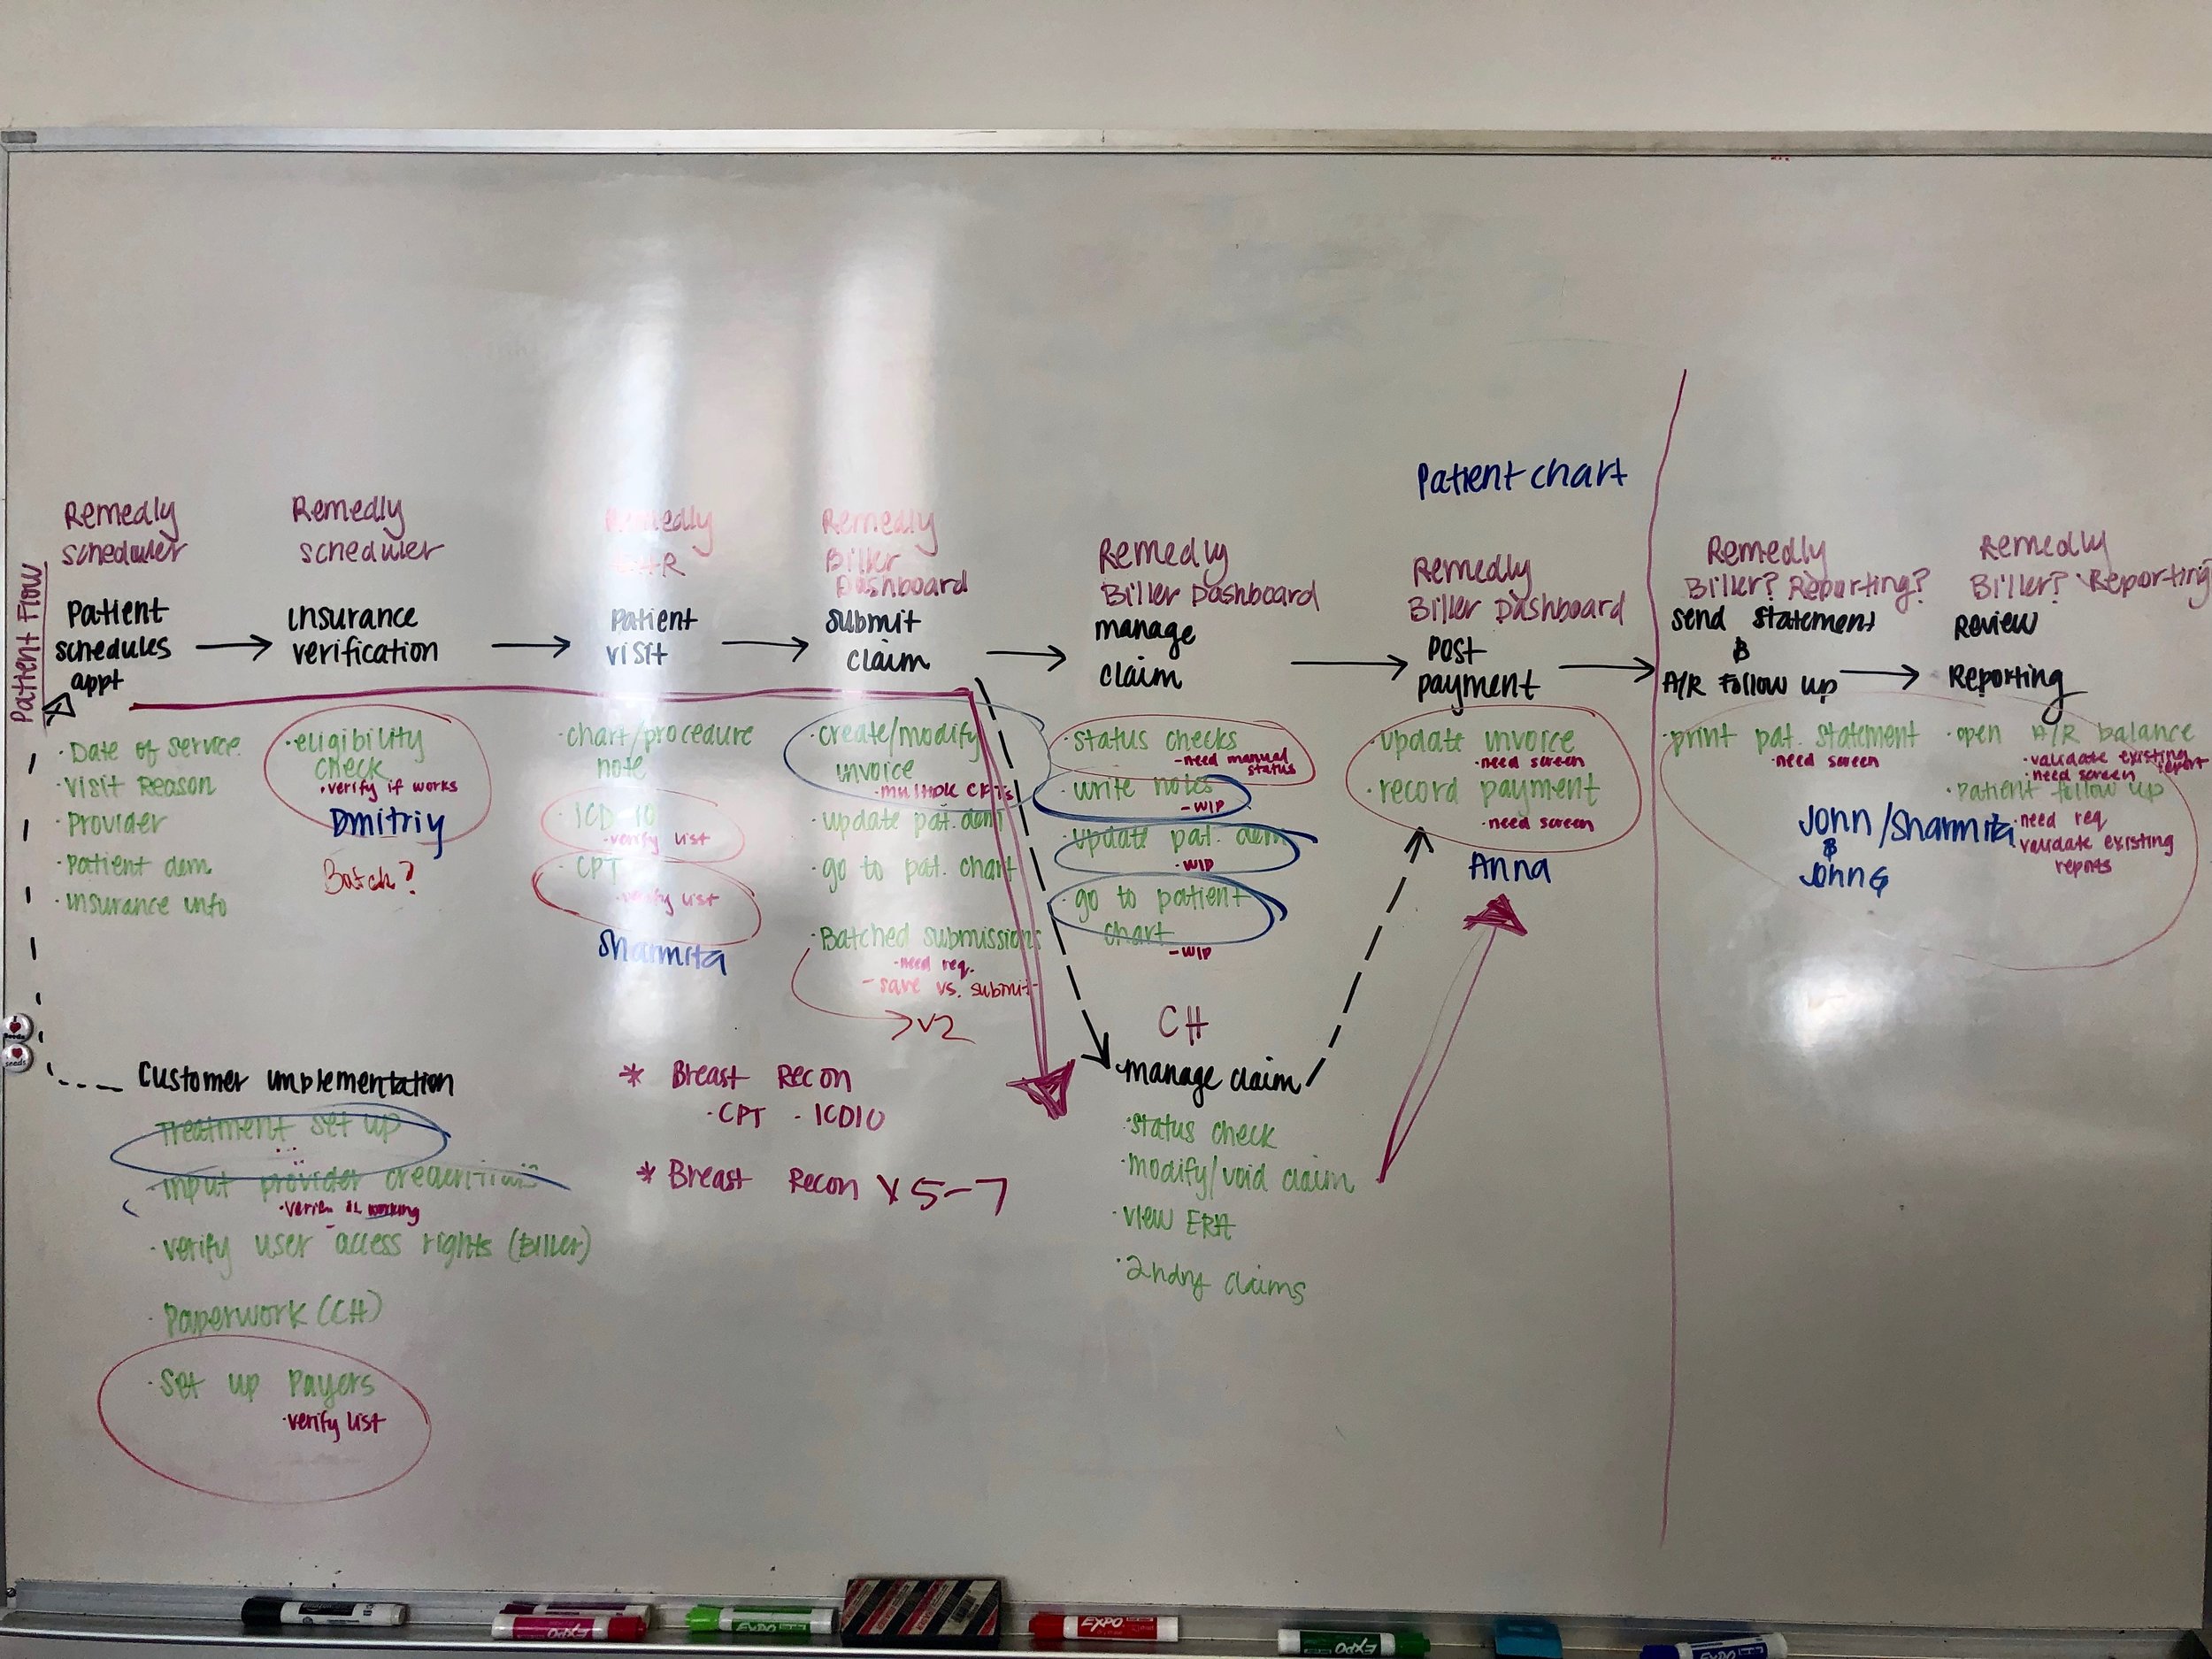 Patient Flow
Remedly
scheduler
Patient
schedules
appt
· Date of service
· Visit Reason
· Provider
· Patient dem
· insurance info
Remedly
scheduler
insurance
verification
· eligibility
check
· verify if works
Dmitriy
Batch?
Remedly
Patient
visit
· chart/procedure
note
· ICD 10
· verify list
· CPT
· verify list
Sharmita
Remedly
Biller
Dashboard
submit
claim
· create/modify
invoice
· multiple CPTs
· update pat. dem
· go to pat. chart
· Batched submissions
- need req.
- save vs. submit
V2
Remedly
Biller Dashboard
manage
claim
· status checks
- need manual
status
· write notes
- WIP
· update pat. dem
- WIP
· go to patient
chart
- WIP
CH
manage claim
· status check
· modify/void claim
· view ERA
· 2ndry claims
Patient chart
Remedly
Biller Dashboard
Post
payment
· update invoice
· need screen
· record payment
· need screen
Anna
Remedly
Biller? Reporting?
send statement
&
A/R Follow up
· print pat. statement
· need screen
John/Sharmita
&
John G
Remedly
Biller? Reporting
Review
Reporting
· open A/R balance
· validate existing
report
· need screen
· Patient follow up
· need req
· validate existing
reports
Customer implementation
· Treatment set up
· input provider
working
· verify user access rights (Biller)
· Paperwork (CH)
· Set up Payers
· verify list
* Breast Recon
· CPT - ICD10
* Breast Recon x 5-7
EXPO
EXPO
EXPO
EXPO
EXPO